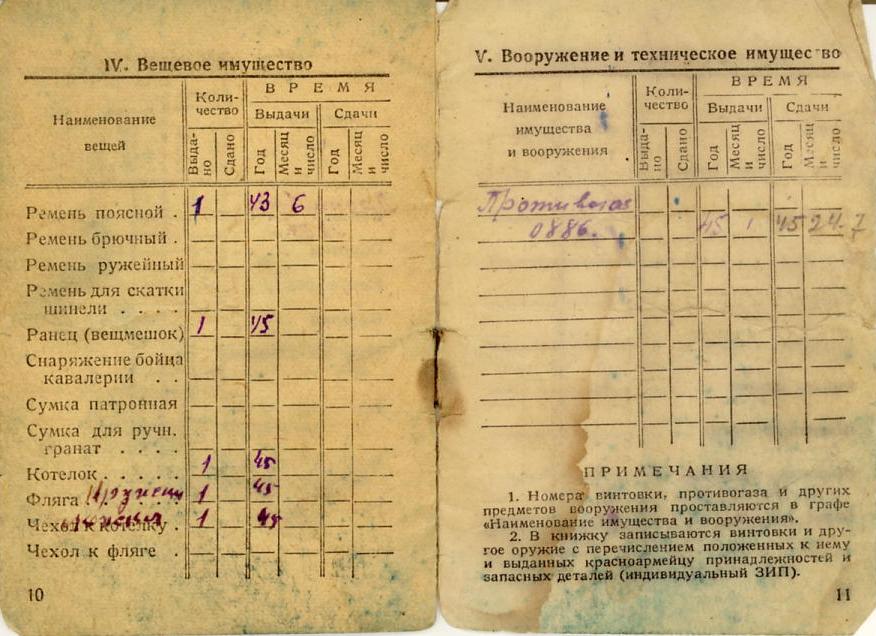 IV. Вещевое имущество
Наименование вещей
Коли-
чество
ВРЕМЯ
Выдачи
Сдачи
Выда-
но
Сдано
Год
Месяц и число
Год
Месяц и число
Ремень поясной . 1 43 6
Ремень брючный .
Ремень ружейный
Ремень для скатки
шинели . . . .
Ранец (вещмешок) 1 45
Снаряжение бойца
кавалерии . .
Сумка патронная
Сумка для ручн.
гранат . . . .
Котелок . . . . . 1 45
Фляга 1 45
Чехол к котелку . 1 45
Чехол к фляге .
10
V. Вооружение и техническое имущество
Наименование
имущества
и вооружения
Коли-
чество
ВРЕМЯ
Выдачи
Сдачи
Выда-
но
Сдано
Год
Месяц и число
Год
Месяц и число
Противогаз
0886. 45 1 45 24-7
ПРИМЕЧАНИЯ
1. Номера винтовки, противогаза и других
предметов вооружения проставляются в графе
«Наименование имущества и вооружения».
2. В книжку записываются винтовки и дру-
гое оружие с перечислением положенных к нему
и выданных красноармейцу принадлежностей и
запасных деталей (индивидуальный ЗИП).
11